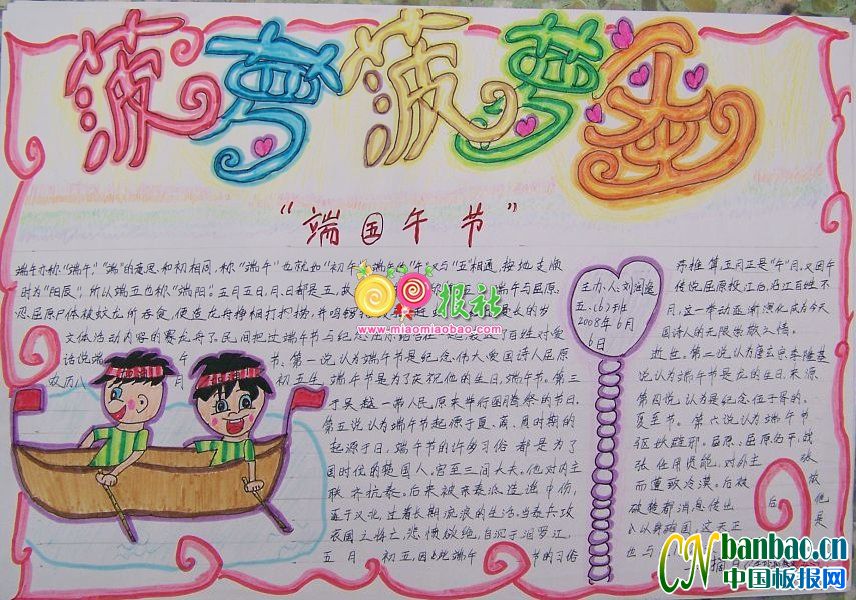 菠萝菠萝蜜
“端国午节”
端午亦称“端午,”“端”的意思和初相同,称“端午”也就如“初午”
“五”相通,按地支顺
时为“阳辰”,所以端五也称“端阳”,五月五日,月、日都是五,故
端午与屈原
忍屈原尸体被蛟龙所吞食,便造龙舟
文体活动内容的赛龙舟了。民间把过端午节与纪念屈原
话说端
午
节。第一说认为端午节是纪念伟大爱国诗人屈原
农历八
月
初五生,端午节是为了庆祝他的生日,端午节。第三
于吴越一带人民原来举行图腾祭的节日,
第五说认为端午节起源于夏、商、周时期的
起源于日,端午节的许多习俗都是为了
国时位的楚国人。官至三闾大夫。他对内主
联齐抗秦。后来被亲秦派造遥中伤,
至于汉北,过着长期流浪的生活。当秦兵攻
哀国之将亡,悲愤欲绝,自沉于汨罗江,
五月初五,因此端午节的习俗
主办人:刘闻逸
五.(6)班
2008年6月
6日
算,五月正是“午”月,又因午
传说屈原投江后,沿江百姓不
月,这一举动逐渐演化成为今天
国诗人的无限崇敬之情。
近世。第二说认为唐玄宗李隆基
说认为端午节是龙的生日,来源
第四说,认为是纪念伍子胥的。
夏至节。第六说认为端午节
驱妖避邪。屈原、屈原名平,战
张任用贤能,对外主张
而遭致冷漠。后被放
破楚都消息传出后,他
以身殉国,这天正是
也与
摘自
报社
www.miaomiaobao.com
CN banbao.cn
中国板报网